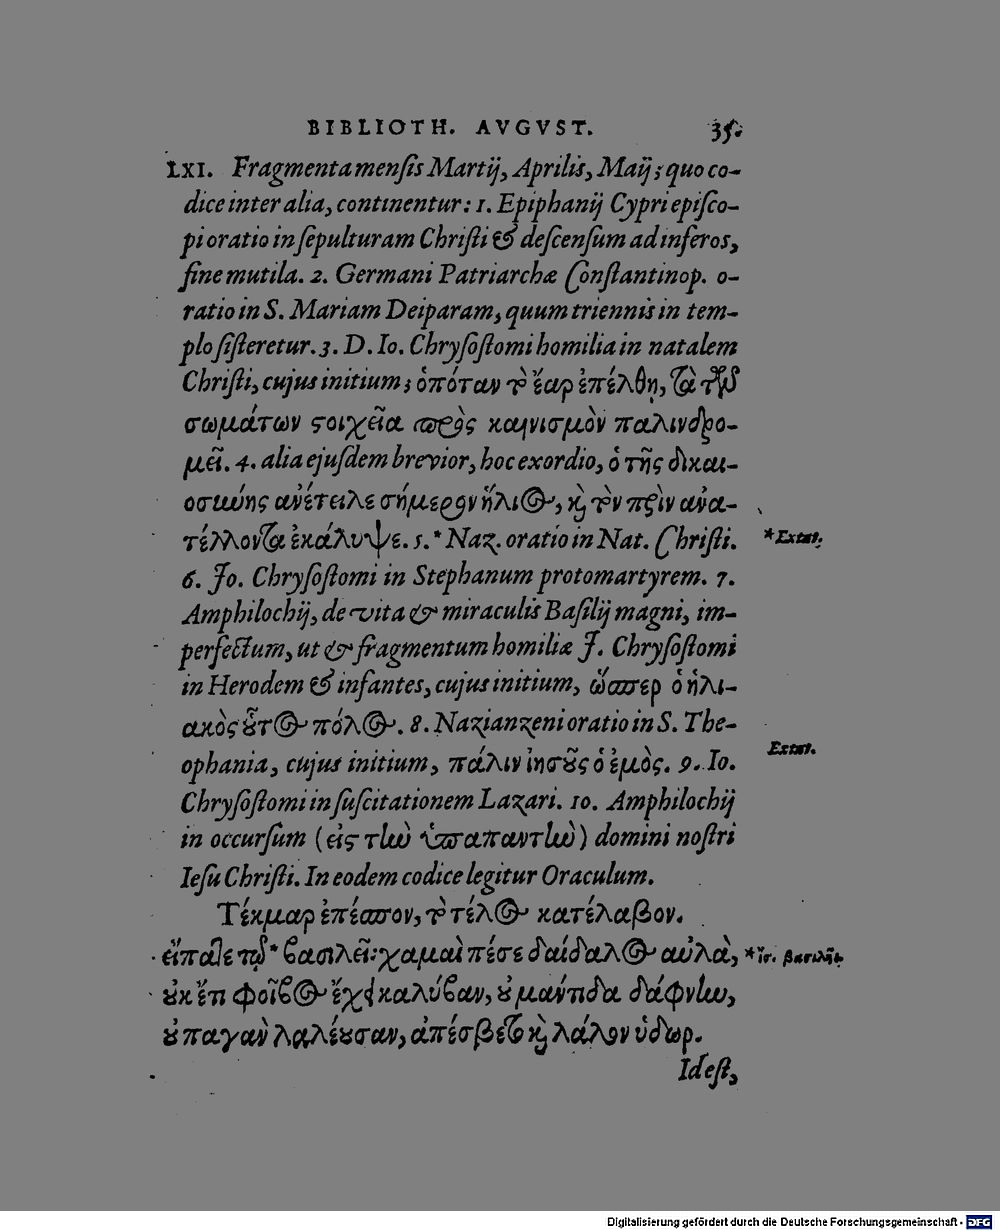 BIBLIOTH. AVGVST. 35.
LXI. Fragmenta menſis Martij, Aprilis, Maij; quo co-
dice inter alia, continentur: 1. Epiphanij Cypri epiſco-
pi oratio in ſepulturam Chriſti & deſcenſum ad inferos,
fine mutila. 2. Germani Patriarchæ Conſtantinop. o-
ratio in S. Mariam Deiparam, quum triennis in tem-
plo ſiſteretur. 3. D. Io. Chryſoſtomi homilia in natalem
Chriſti, cujus initium; ὁπόταν τὸ ἔαρ ἐπέλθῃ, τὰ τῶν
σωμάτων ϛοιχεῖα πρὸς καινισμὸν παλινδρο-
μεῖ. 4. alia ejuſdem brevior, hoc exordio, ὁ τῆς δικαι-
οσιύης ἀνέτειλε σήμερον ἥλιος, καὶ τὸν πρὶν ἀνα-
τέλλοντα ἐκάλυψε. 5.* Naz. oratio in Nat. Chriſti.
*Extat.
6. Jo. Chryſoſtomi in Stephanum protomartyrem. 7.
Amphilochij, de vita & miraculis Baſilij magni, im-
perfectum, ut & fragmentum homiliæ J. Chryſoſtomi
in Herodem & infantes, cujus initium, ὥσπερ ὁ ἡλι-
ακὸς ȣ̓͂τος πόλος. 8. Nazianzeni oratio in S. The-
ophania, cujus initium, πάλιν ἰησȣ͂ς ὁ ἐμὸς. 9. Io.
Extat.
Chryſoſtomi in ſuſcitationem Lazari. 10. Amphilochij
in occurſum (εἰς τὴν ὑπαπαντὴν) domini noſtri
Ieſu Chriſti. In eodem codice legitur Oraculum.
Τέκμαρ ἐπέσπον, τὸ τέλος κατέλαβον.
εἴπατε τῷ* βασιλεῖ: χαμαὶ πέσε δαίδαλος αὐλὰ,
*ἴσ. βασιλῆϊ
ȣ̓κ ἔτι φοῖβος ἔχει καλύβαν, ȣ̓ μαντιδα δάφνην,
ȣ̓ παγὰν λαλέȣσαν, ἀπέσβετο καὶ λάλον ὑδωρ.
Id eſt,
Digitalisierung gefördert durch die Deutsche Forschungsgemeinschaft - DFG